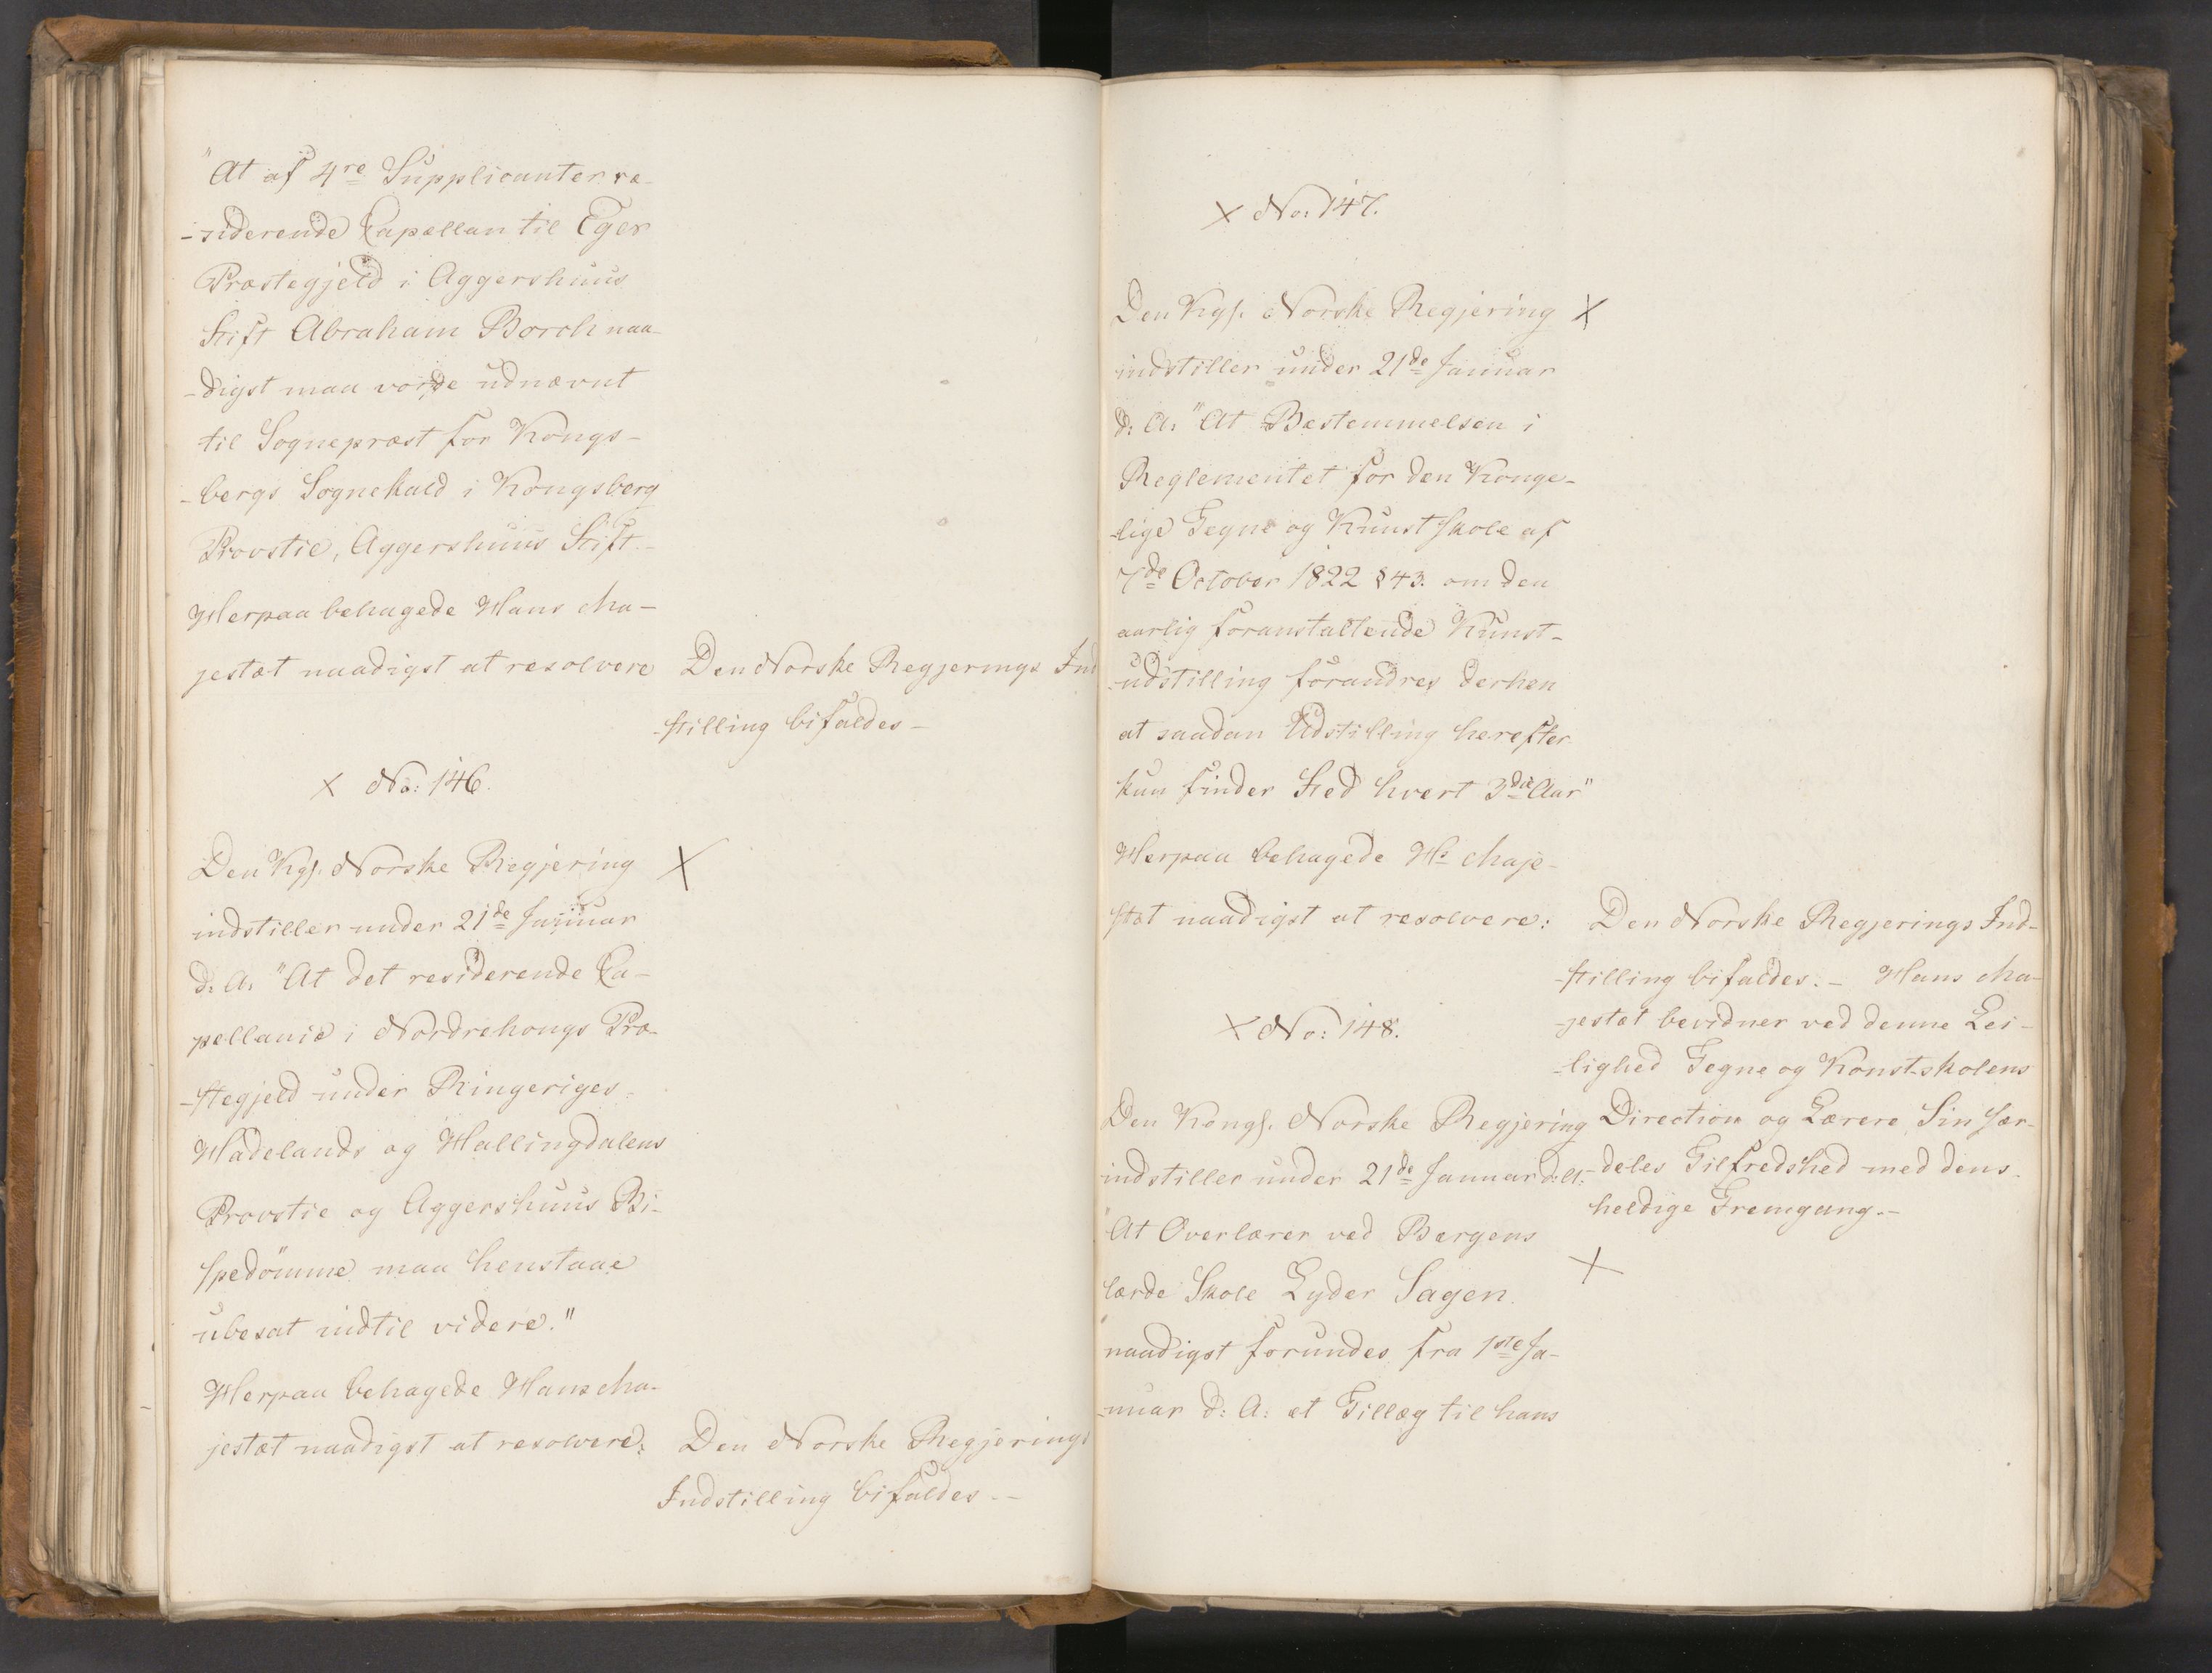 "At af 4re Supplicanter re-
-siderende Capellan til Eger
Præstegjeld i Aggershuus
Stift Abraham Borch naa-
-digst maa vorde udnævnt
til Sognepræst for Kongs-
-bergs Sognekald i Kongsberg
Provstie, Aggershuus Stift.-
Herpaa behagede Hans Ma-
jestæt naadigst at resolvere
Den Norske Regjerings Ind
-stilling bifaldes-
× No: 146.
Den Kgl. Norske Regjering ×
indstiller under 21de Januar
d: A: "At det residerende Ca-
pellanie i Nordrehougs Præ-
-stegjeld under Ringeriges,
Hadelands og Hallingdalens
Provstie og Aggershuus Bi-
spedömme maa henstaae
ubesat indtil videre."
Herpaa behagede Hans Ma-
jestæt naadigst at resolvere:
Den Norske Regjerings
Indstilling bifaldes.-
× No: 147.
Den Kgl. Norske Regjering ×
indstiller under 21de Januar
d: A: "At Bestemmelsen i
Reglementet for den Konge-
-lige Tegne og Kunstskole af
7de October 1822 § 43. om den
aarlig foranstaltende Kunst-
-udstilling forandres derhen
at saadan Udstilling herefter
kun finder Sted hvert 3die Aar"
Herpaa behagede Hs Maje-
stæt naadigst at resolvere:
Den Norske Regjerings Ind-
-stilling bifaldes.- Hans Ma-
jestæt bevidner ved denne Lei-
-lighed Tegne og Konst-skolens
Direction og Lærere Sin sær-
-deles Tilfredshed med dens
heldige Fremgang.-
× No: 148.
Den Kongl. Norske Regjering
indstiller under 21de Januar d: A:
"At Overlærer ved Bergens ×
lærde Skole Lyder Sagen
naadigst forundes fra 1ste Ja-
-nuar d: A: et Tillæg til hans